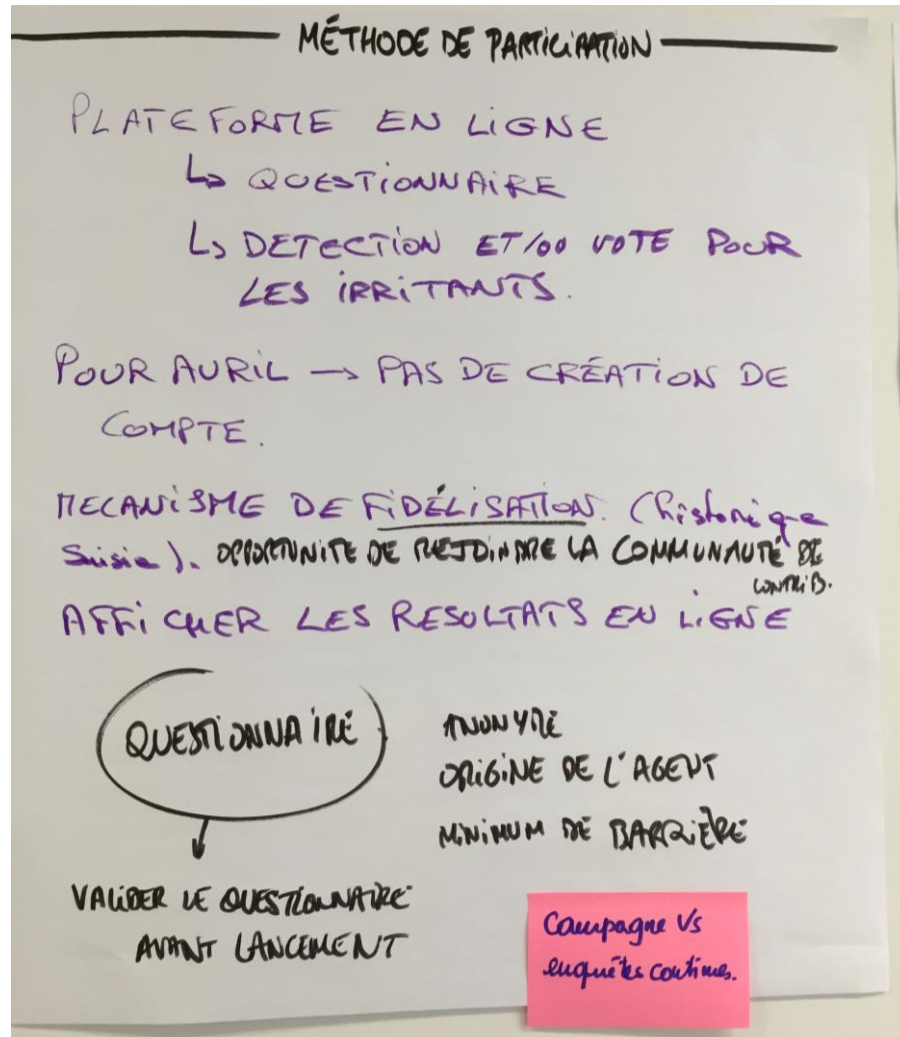 MÉTHODE DE PARTICIPATION
PLATEFORME EN LIGNE
↳ QUESTIONNAIRE
↳ DETECTION ET/OU VOTE POUR
LES IRRITANTS.
POUR AVRIL → PAS DE CRÉATION DE
COMPTE.
MECANISME DE FIDÉLISATION. (historique
Suisie). OPPORTUNITE DE REJOINDRE LA COMMUNAUTÉ DE
CONTRIB.
AFFICHER LES RESULTATS EN LIGNE
QUESTIONNAIRE
ANONYME
ORIGINE DE L'AGENT
MINIMUM DE BARRIÈRE
VALIDER LE QUESTIONNAIRE
AVANT LANCEMENT
Campagne Vs
enquêtes continues.